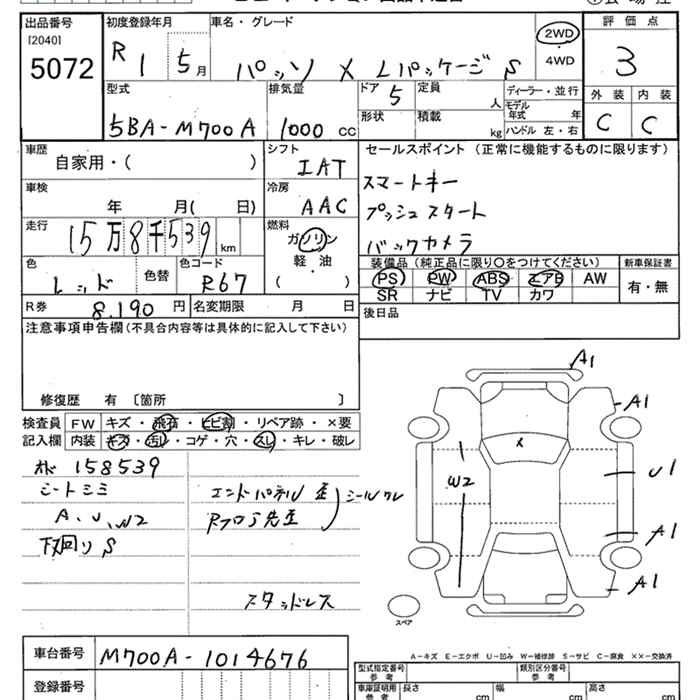 出品番号 初度登録年月 車名・グレード 評価点
[2040]
5072
R1 5月 パッソ X Lパッケージ S 2WD・4WD 3
型式 排気量 ドア 定員 ディーラー・並行 外装 内装
5BA-M700A 1000cc 5 人 モデル年式 年 C C
形状 積載 kg ハンドル 左・右
車歴 シフト セールスポイント (正常に機能するものに限ります)
自家用・( ) IAT
スマートキー
車検 冷房
年 月( 日) AAC プッシュスタート
走行 燃料
15万8千539km ガソリン バックカメラ
軽油
( )
色 色替 色コード 装備品(純正品に限り○をつけてください) 新車保証書
レッド R67 PS PW ABS エアB AW 有・無
SR ナビ TV カワ
R券 8,190円 名変期限 月 日
後日品
注意事項申告欄(不具合内容等は具体的に記入して下さい)
修復歴 有 〔箇所 〕
検査員 FW キズ・飛石・ヒビ割・リペア跡・×要
記入欄 内装 キズ・汚レ・コゲ・穴・スレ・キレ・破レ
158539
シートシミ エンドパネル歪 シールワレ
A、U、W2
下回りS
スタッドレス
A1
A1
U1
W2
A1
A1
スペア
A-キズ E-エクボ U-凹み W-補修跡 S-サビ C-腐食 ××-交換済
車台番号 M700A-1014676
登録番号
型式指定番号 参考 類別区分番号 参考
車庫証明用 参考 長さ cm 幅 cm 高さ cm